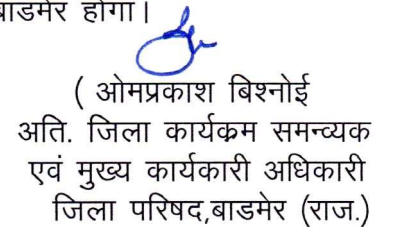 बाडमेर होगा।
( ओमप्रकाश बिश्नोई
अति. जिला कार्यक्रम समन्व्यक
एवं मुख्य कार्यकारी अधिकारी
जिला परिषद,बाडमेर (राज.)